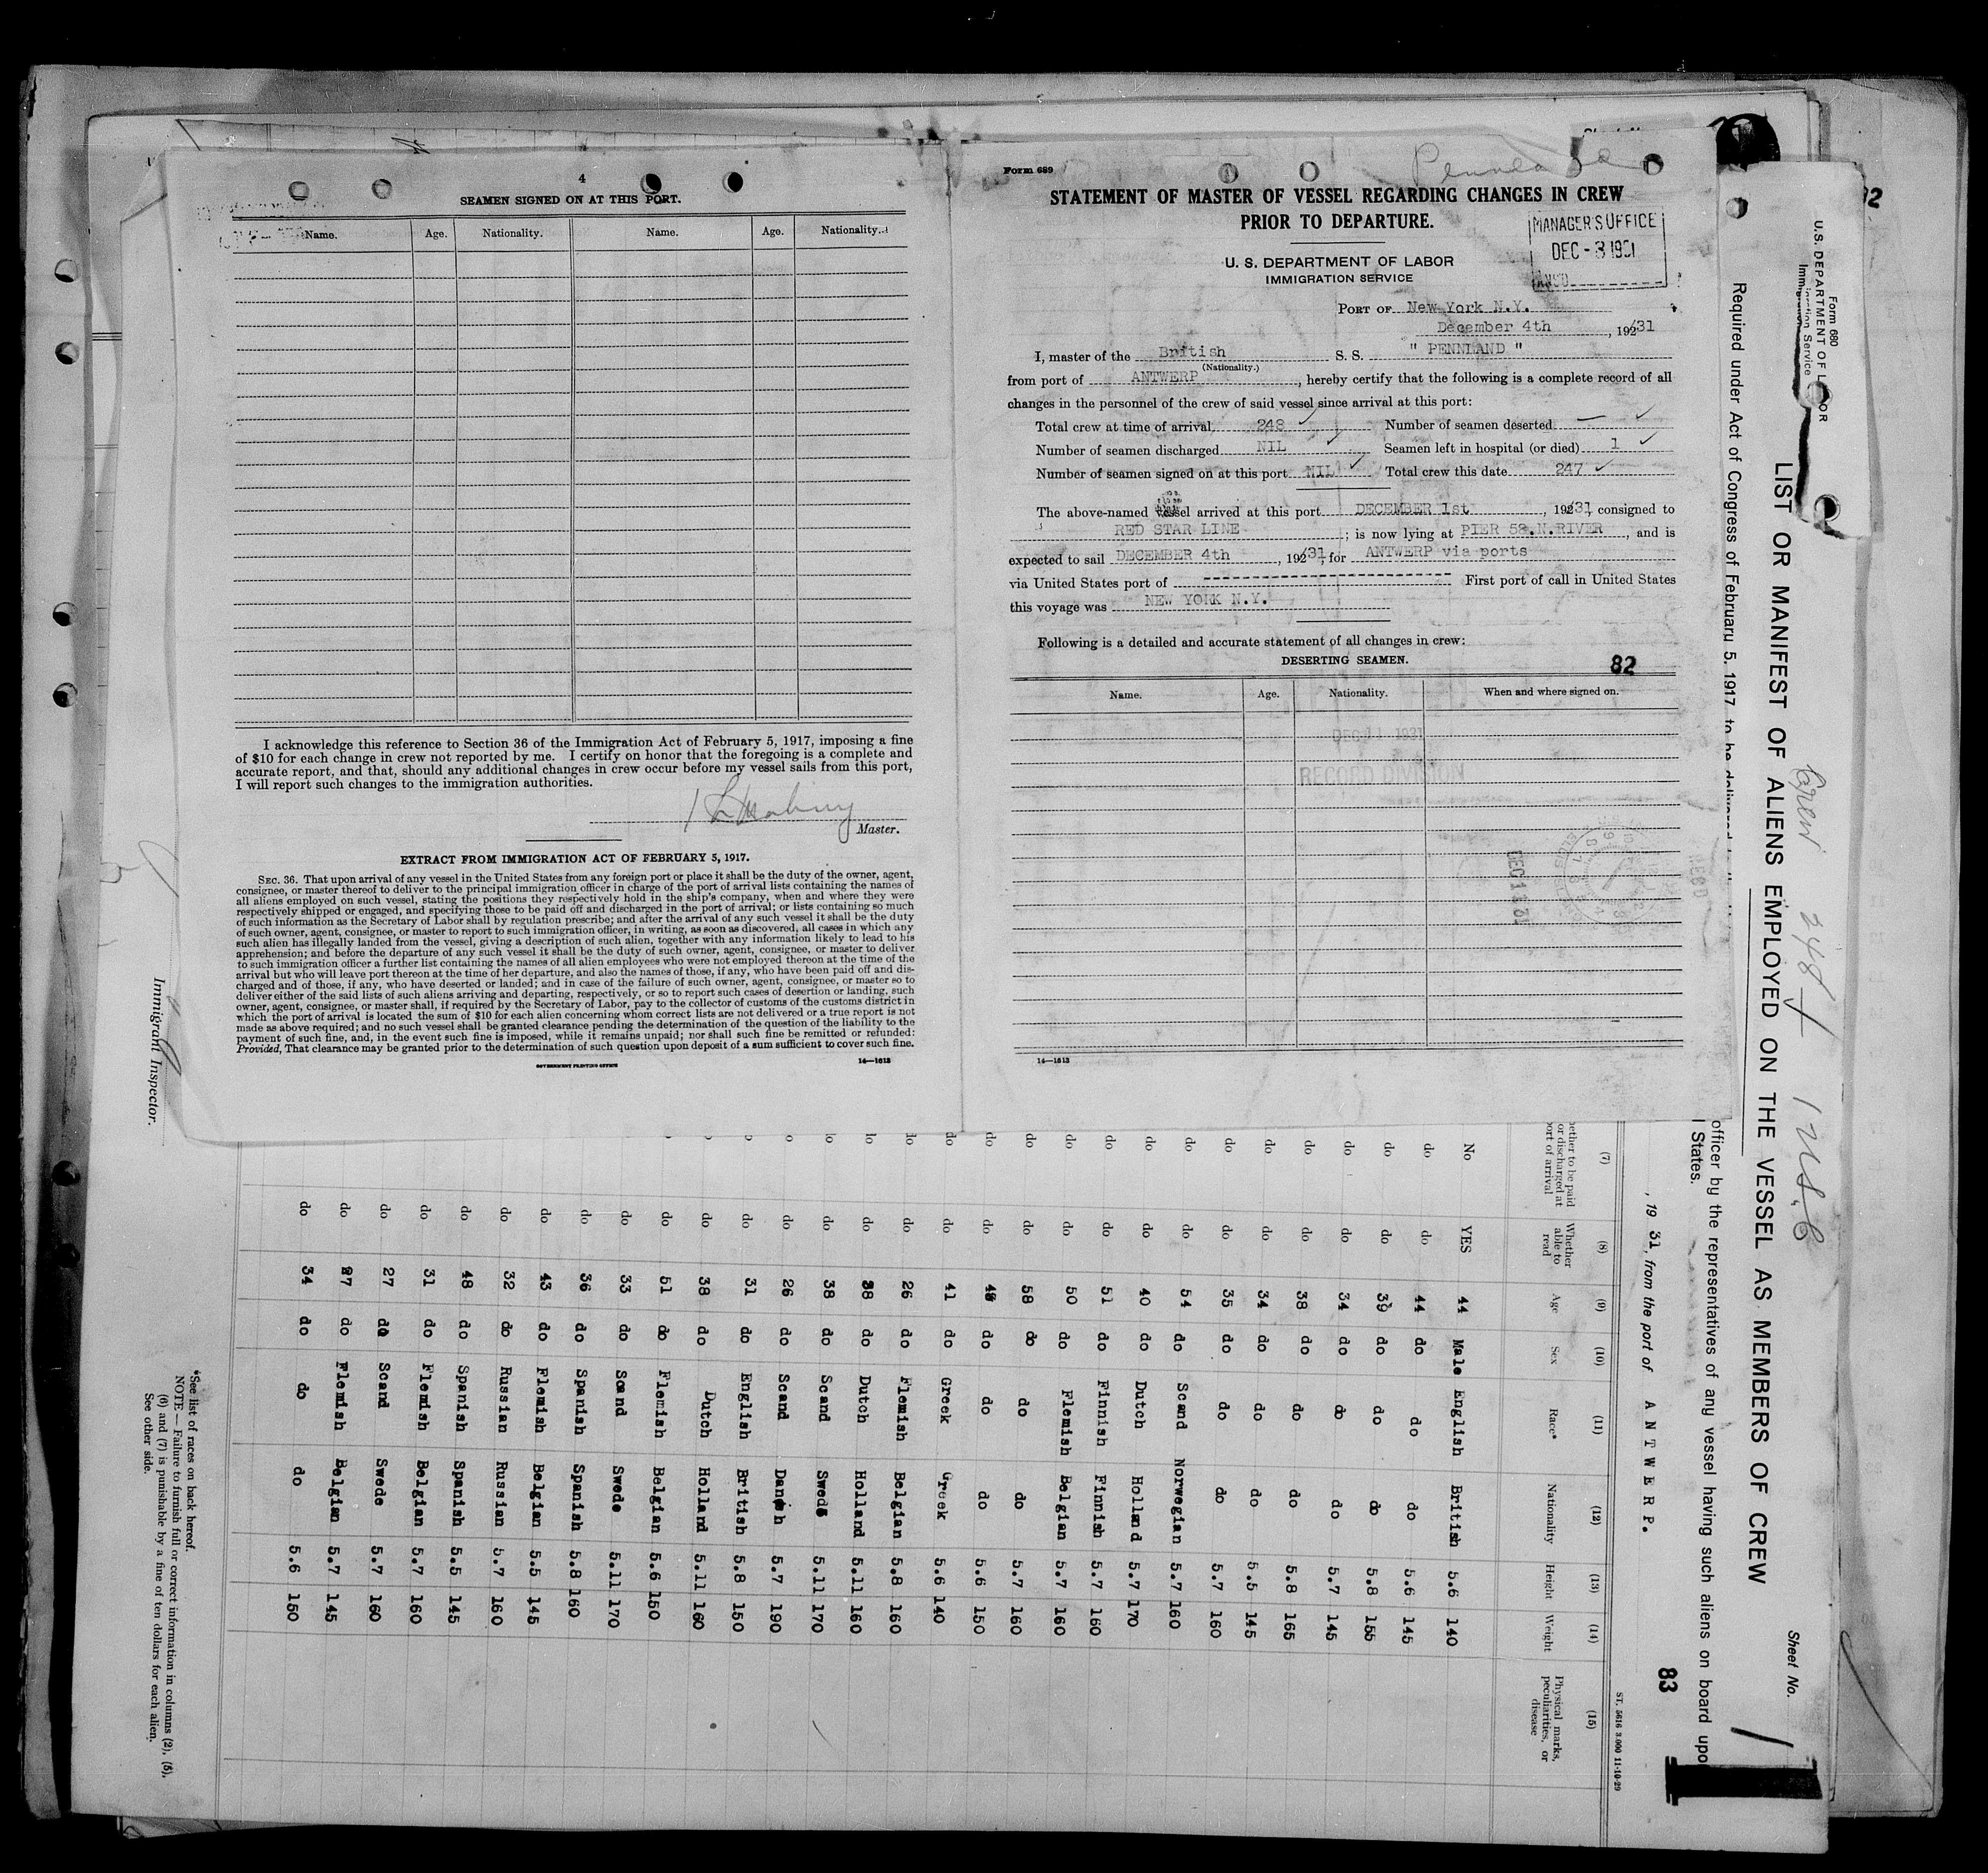 4
SEAMEN SIGNED ON AT THIS PORT.
Name. Age. Nationality. Name. Age. Nationality.
I acknowledge this reference to Section 36 of the Immigration Act of February 5, 1917, imposing a fine
of $10 for each change in crew not reported by me. I certify on honor that the foregoing is a complete and
accurate report, and that, should any additional changes in crew occur before my vessel sails from this port,
I will report such changes to the immigration authorities.
Master.
EXTRACT FROM IMMIGRATION ACT OF FEBRUARY 5, 1917.
SEC. 36. That upon arrival of any vessel in the United States from any foreign port or place it shall be the duty of the owner, agent,
consignee, or master thereof to deliver to the principal immigration officer in charge of the port of arrival lists containing the names of
all aliens employed on such vessel, stating the positions they respectively hold in the ship's company, when and where they were
respectively shipped or engaged, and specifying those to be paid off and discharged in the port of arrival; or lists containing so much
of such information as the Secretary of Labor shall by regulation prescribe; and after the arrival of any such vessel it shall be the duty
of such owner, agent, consignee, or master to report to such immigration officer, in writing, as soon as discovered, all cases in which any
such alien has illegally landed from the vessel, giving a description of such alien, together with any information likely to lead to his
apprehension; and before the departure of any such vessel it shall be the duty of such owner, agent, consignee, or master to deliver
to such immigration officer a further list containing the names of all alien employees who were not employed thereon at the time of the
arrival but who will leave port thereon at the time of her departure, and also the names of those, if any, who have been paid off and dis-
charged and of those, if any, who have deserted or landed; and in case of the failure of such owner, agent, consignee, or master so to
deliver either of the said lists of such aliens arriving and departing, respectively, or so to report such cases of desertion or landing, such
owner, agent, consignee, or master shall, if required by the Secretary of Labor, pay to the collector of customs of the customs district in
which the port of arrival is located the sum of $10 for each alien concerning whom correct lists are not delivered or a true report is not
made as above required; and no such vessel shall be granted clearance pending the determination of the question of the liability to the
payment of such fine, and, in the event such fine is imposed, while it remains unpaid; nor shall such fine be remitted or refunded:
Provided, That clearance may be granted prior to the determination of such question upon deposit of a sum sufficient to cover such fine.
GOVERNMENT PRINTING OFFICE 14—1613
Form 689
Pennland
STATEMENT OF MASTER OF VESSEL REGARDING CHANGES IN CREW
PRIOR TO DEPARTURE.
MANAGER'S OFFICE
DEC - 3 1931
ANSD
U. S. DEPARTMENT OF LABOR
IMMIGRATION SERVICE
PORT OF New York N.Y.
December 4th, 19231
I, master of the British S. S. " PENNLAND "
(Nationality.)
from port of ANTWERP, hereby certify that the following is a complete record of all
changes in the personnel of the crew of said vessel since arrival at this port:
Total crew at time of arrival 248 Number of seamen deserted —
Number of seamen discharged NIL Seamen left in hospital (or died) 1
Number of seamen signed on at this port NIL Total crew this date 247
The above-named vessel arrived at this port DECEMBER 1st, 19231, consigned to
RED STAR LINE; is now lying at PIER 58.N.RIVER, and is
expected to sail DECEMBER 4th, 19231, for ANTWERP via ports
via United States port of ---------- First port of call in United States
this voyage was NEW YORK N.Y.
Following is a detailed and accurate statement of all changes in crew:
DESERTING SEAMEN. 82
Name. Age. Nationality. When and where signed on.
DEC 11 1931
RECORD DIVISION
14—1613
Form 680
U.S. DEPARTMENT OF LABOR
Immigration Service
Crew 248 1 U.S.C
Sheet No. 1
LIST OR MANIFEST OF ALIENS EMPLOYED ON THE VESSEL AS MEMBERS OF CREW
Required under Act of Congress of February 5, 1917, to be delivered
officer by the representatives of any vessel having such aliens on board upo
States.
83
, 19 31, from the port of A N T W E R P.
ST. 5616 3.000 11-10-29
(7) (8) (9) (10) (11) (12) (13) (14) (15)
hether to be paid or discharged at port of arrival Whether able to read Age Sex Race* Nationality Height Weight Physical marks, peculiarities, or disease
No YES 44 Male English British 5.6 140
do do 44 do do do 5.6 145
do do 39 do do do 5.8 155
do do 34 do do do 5.7 145
do do 38 do do do 5.8 165
do do 34 do do do 5.5 145
do do 35 do do do 5.7 160
do do 54 do Scand Norwegian 5.7 160
do do 40 do Dutch Holland 5.7 170
do do 51 do Finnish Finnish 5.7 160
do do 50 do Flemish Belgian 5.7 160
do do 58 do do do 5.7 160
do do do do do 5.6 150
do do 41 do Greek Greek 5.6 140
do do 26 do Flemish Belgian 5.8 160
do do 38 do Dutch Holland 5.11 160
do do 38 do Scand Swede 5.11 170
do do 26 do Scand Danish 5.7 190
do 31 do English British 5.8 150
do 38 do Dutch Holland 5.11 160
do 51 do Flemish Belgian 5.6 150
do 33 do Scand Swede 5.11 170
do 36 do Spanish Spanish 5.8 160
do 43 do Flemish Belgian 5.5 145
do 32 do Russian Russian 5.7 160
do 48 do Spanish Spanish 5.5 145
do 31 do Flemish Belgian 5.7 160
do 27 do Scand Swede 5.7 160
do 27 do Flemish Belgian 5.7 145
do 34 do do do 5.6 150
*See list of races on back hereof.
NOTE.—Failure to furnish full or correct information in columns (2), (5),
(6) and (7) is punishable by a fine of ten dollars for each alien.
See other side.
Immigrant Inspector.